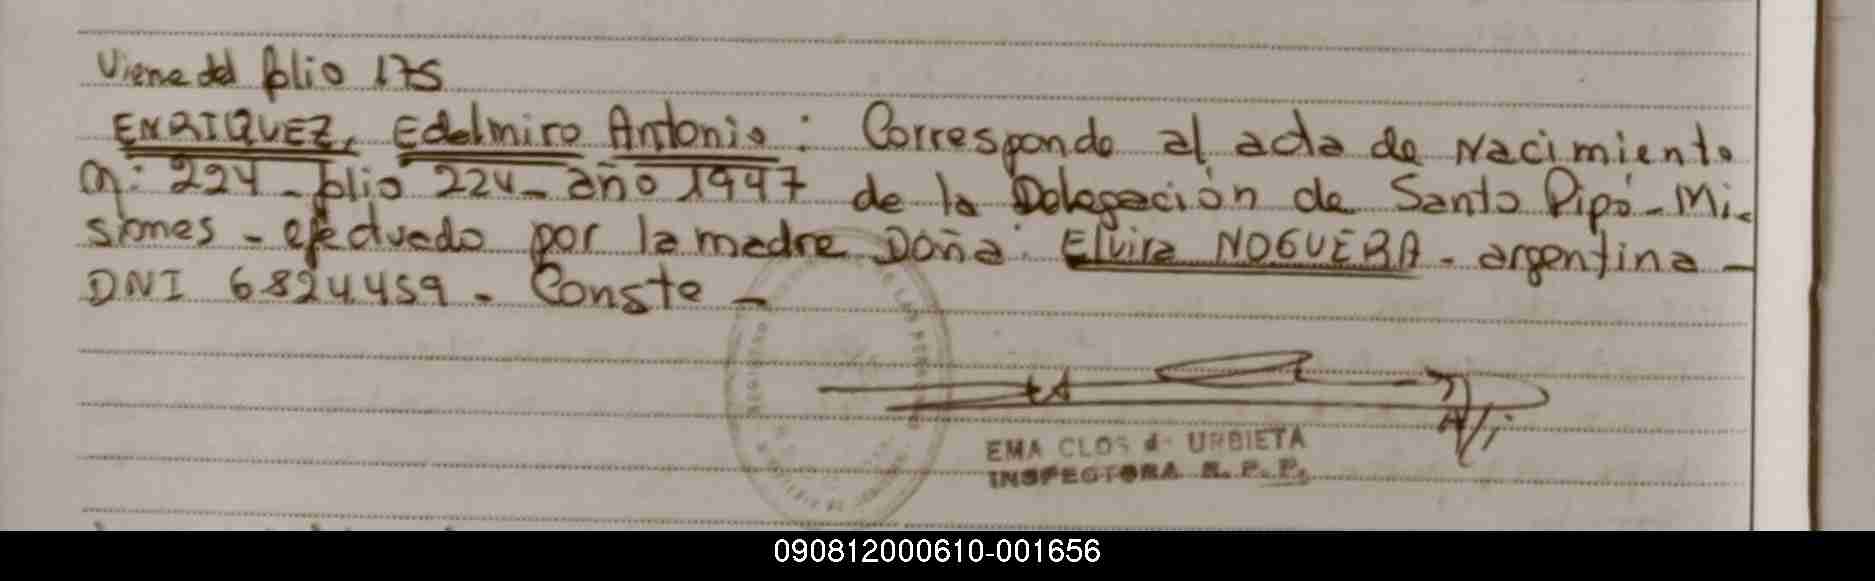 Viene del folio 175
ENRIQUEZ, Edelmiro Antonio: Corresponde al acta de Nacimiento
n: 224 - folio 224 - año 1947 de la Delegación de Santo Pipó - Mi-
siones - efectuado por la madre Doña: Elvira NOGUERA - argentina -
DNI 6824459 - Conste -
A/i
EMA CLOS de URBIETA
INSPECTORA R. P. P.
090812000610-001656